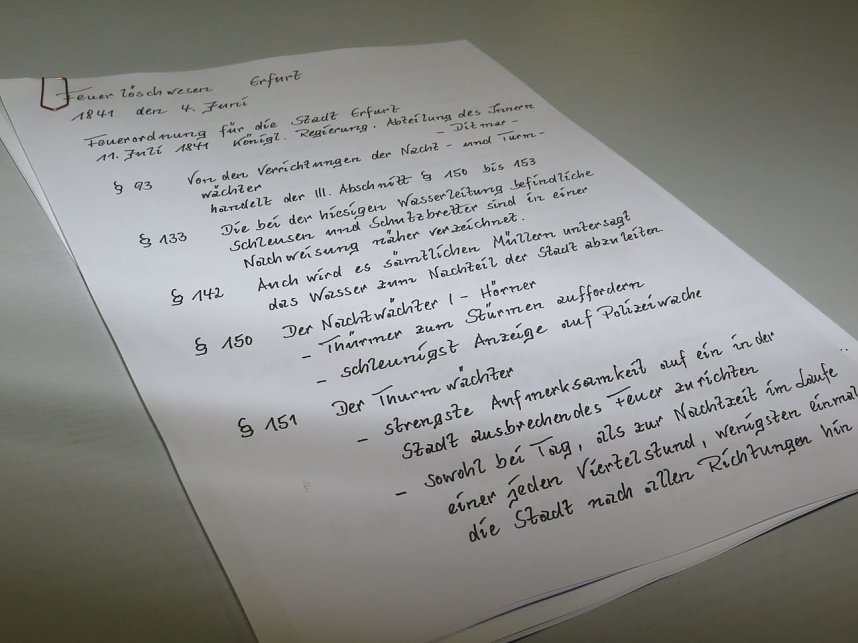 Feuerlöschwesen Erfurt
1841 den 4. Juni
Feuerordnung für die Stadt Erfurt
11. Juli 1841 Königl. Regierung. Abteilung des Innern
- Ditmar -
§ 93 Von den Verrichtungen der Nacht- und Turm-
wächter
handelt der III. Abschnitt § 150 bis 153
§ 133 Die bei der hiesigen Wasserleitung befindliche
Schleusen und Schutzbretter sind in einer
Nachweisung näher verzeichnet.
§ 142 Auch wird es sämtlichen Müllern untersagt
das Wasser zum Nachteil der Stadt abzuleiten
§ 150 Der Nachtwächter I - Hörner
- Thürmer zum Stürmen auffordern
- schleunigst Anzeige auf Polizeiwache
§ 151 Der Thurmwächter
- strengste Aufmerksamkeit auf ein in der
Stadt ausbrechendes Feuer zu richten
- sowohl bei Tag, als zur Nachtzeit im Laufe
einer jeden Viertelstund, wenigsten einmal
die Stadt nach allen Richtungen hin